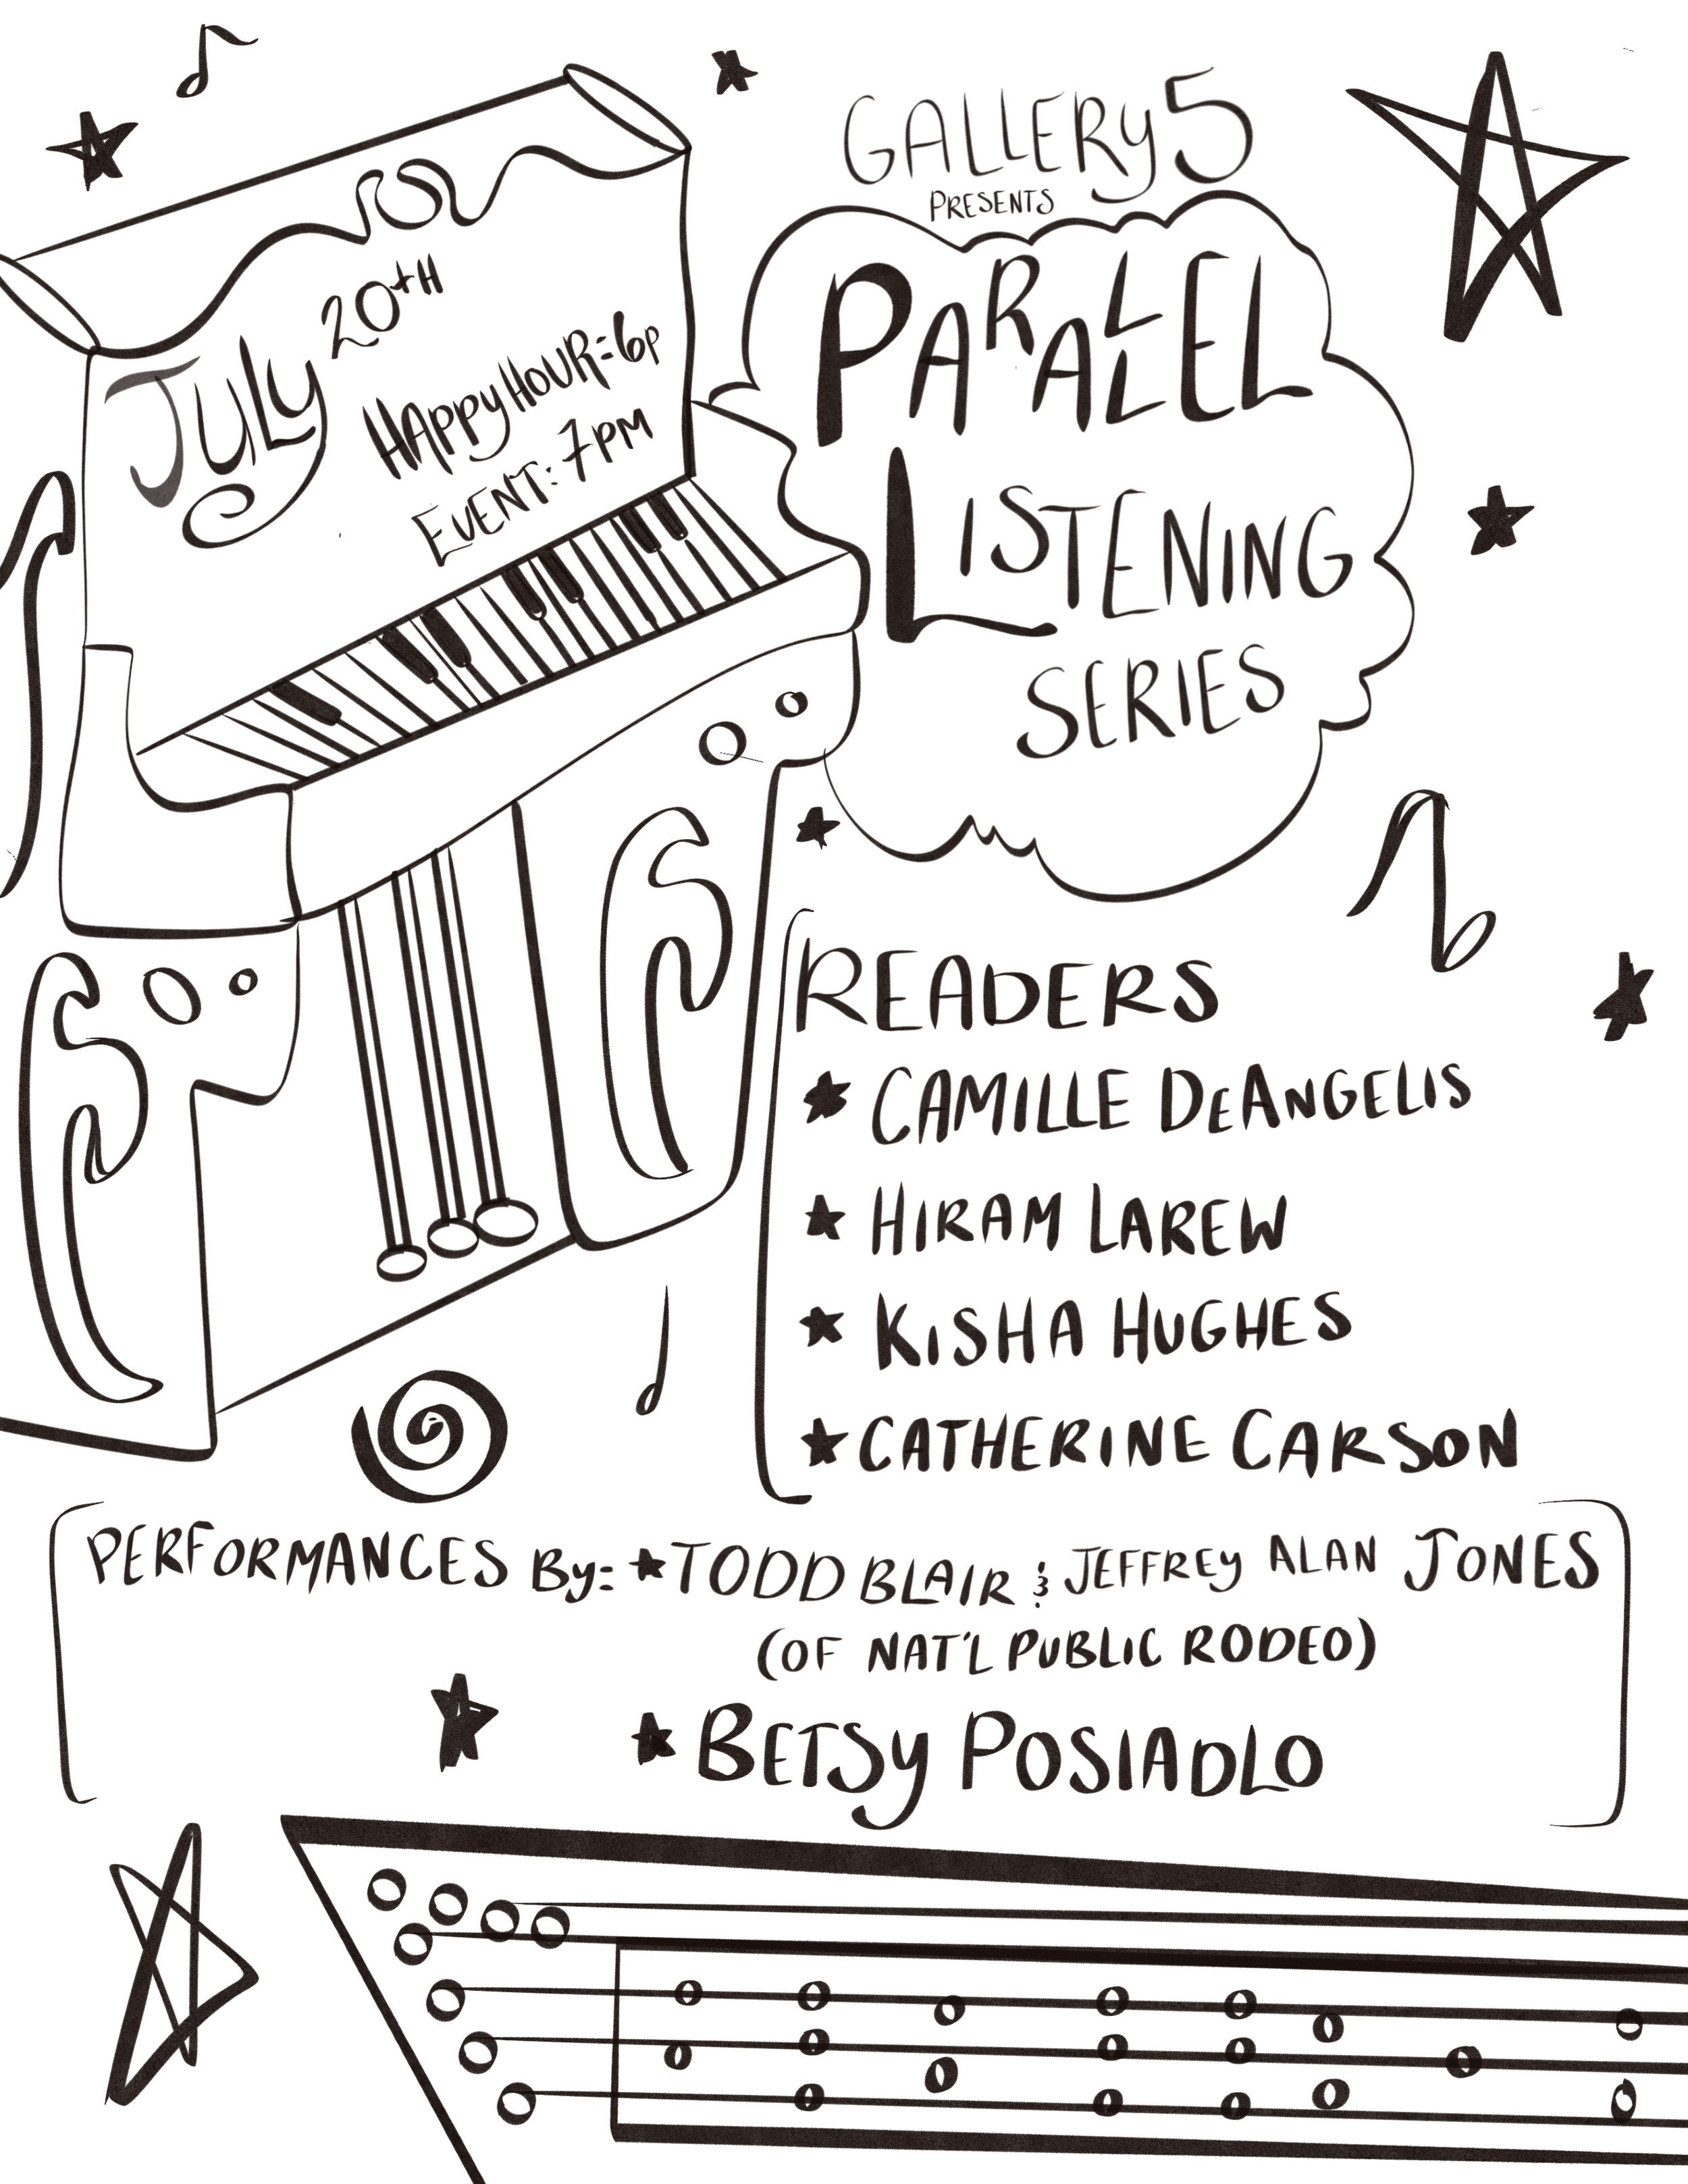 GALLERY5
PRESENTS
PARALLEL
LISTENING
SERIES
JULY 20TH
HAPPY HOUR: 6P
EVENT: 7PM
READERS
★ CAMILLE DEANGELIS
★ HIRAM LAREW
★ KISHA HUGHES
★ CATHERINE CARSON
PERFORMANCES BY: ★ TODD BLAIR & JEFFREY ALAN JONES
(OF NAT'L PUBLIC RODEO)
★ BETSY POSIADLO